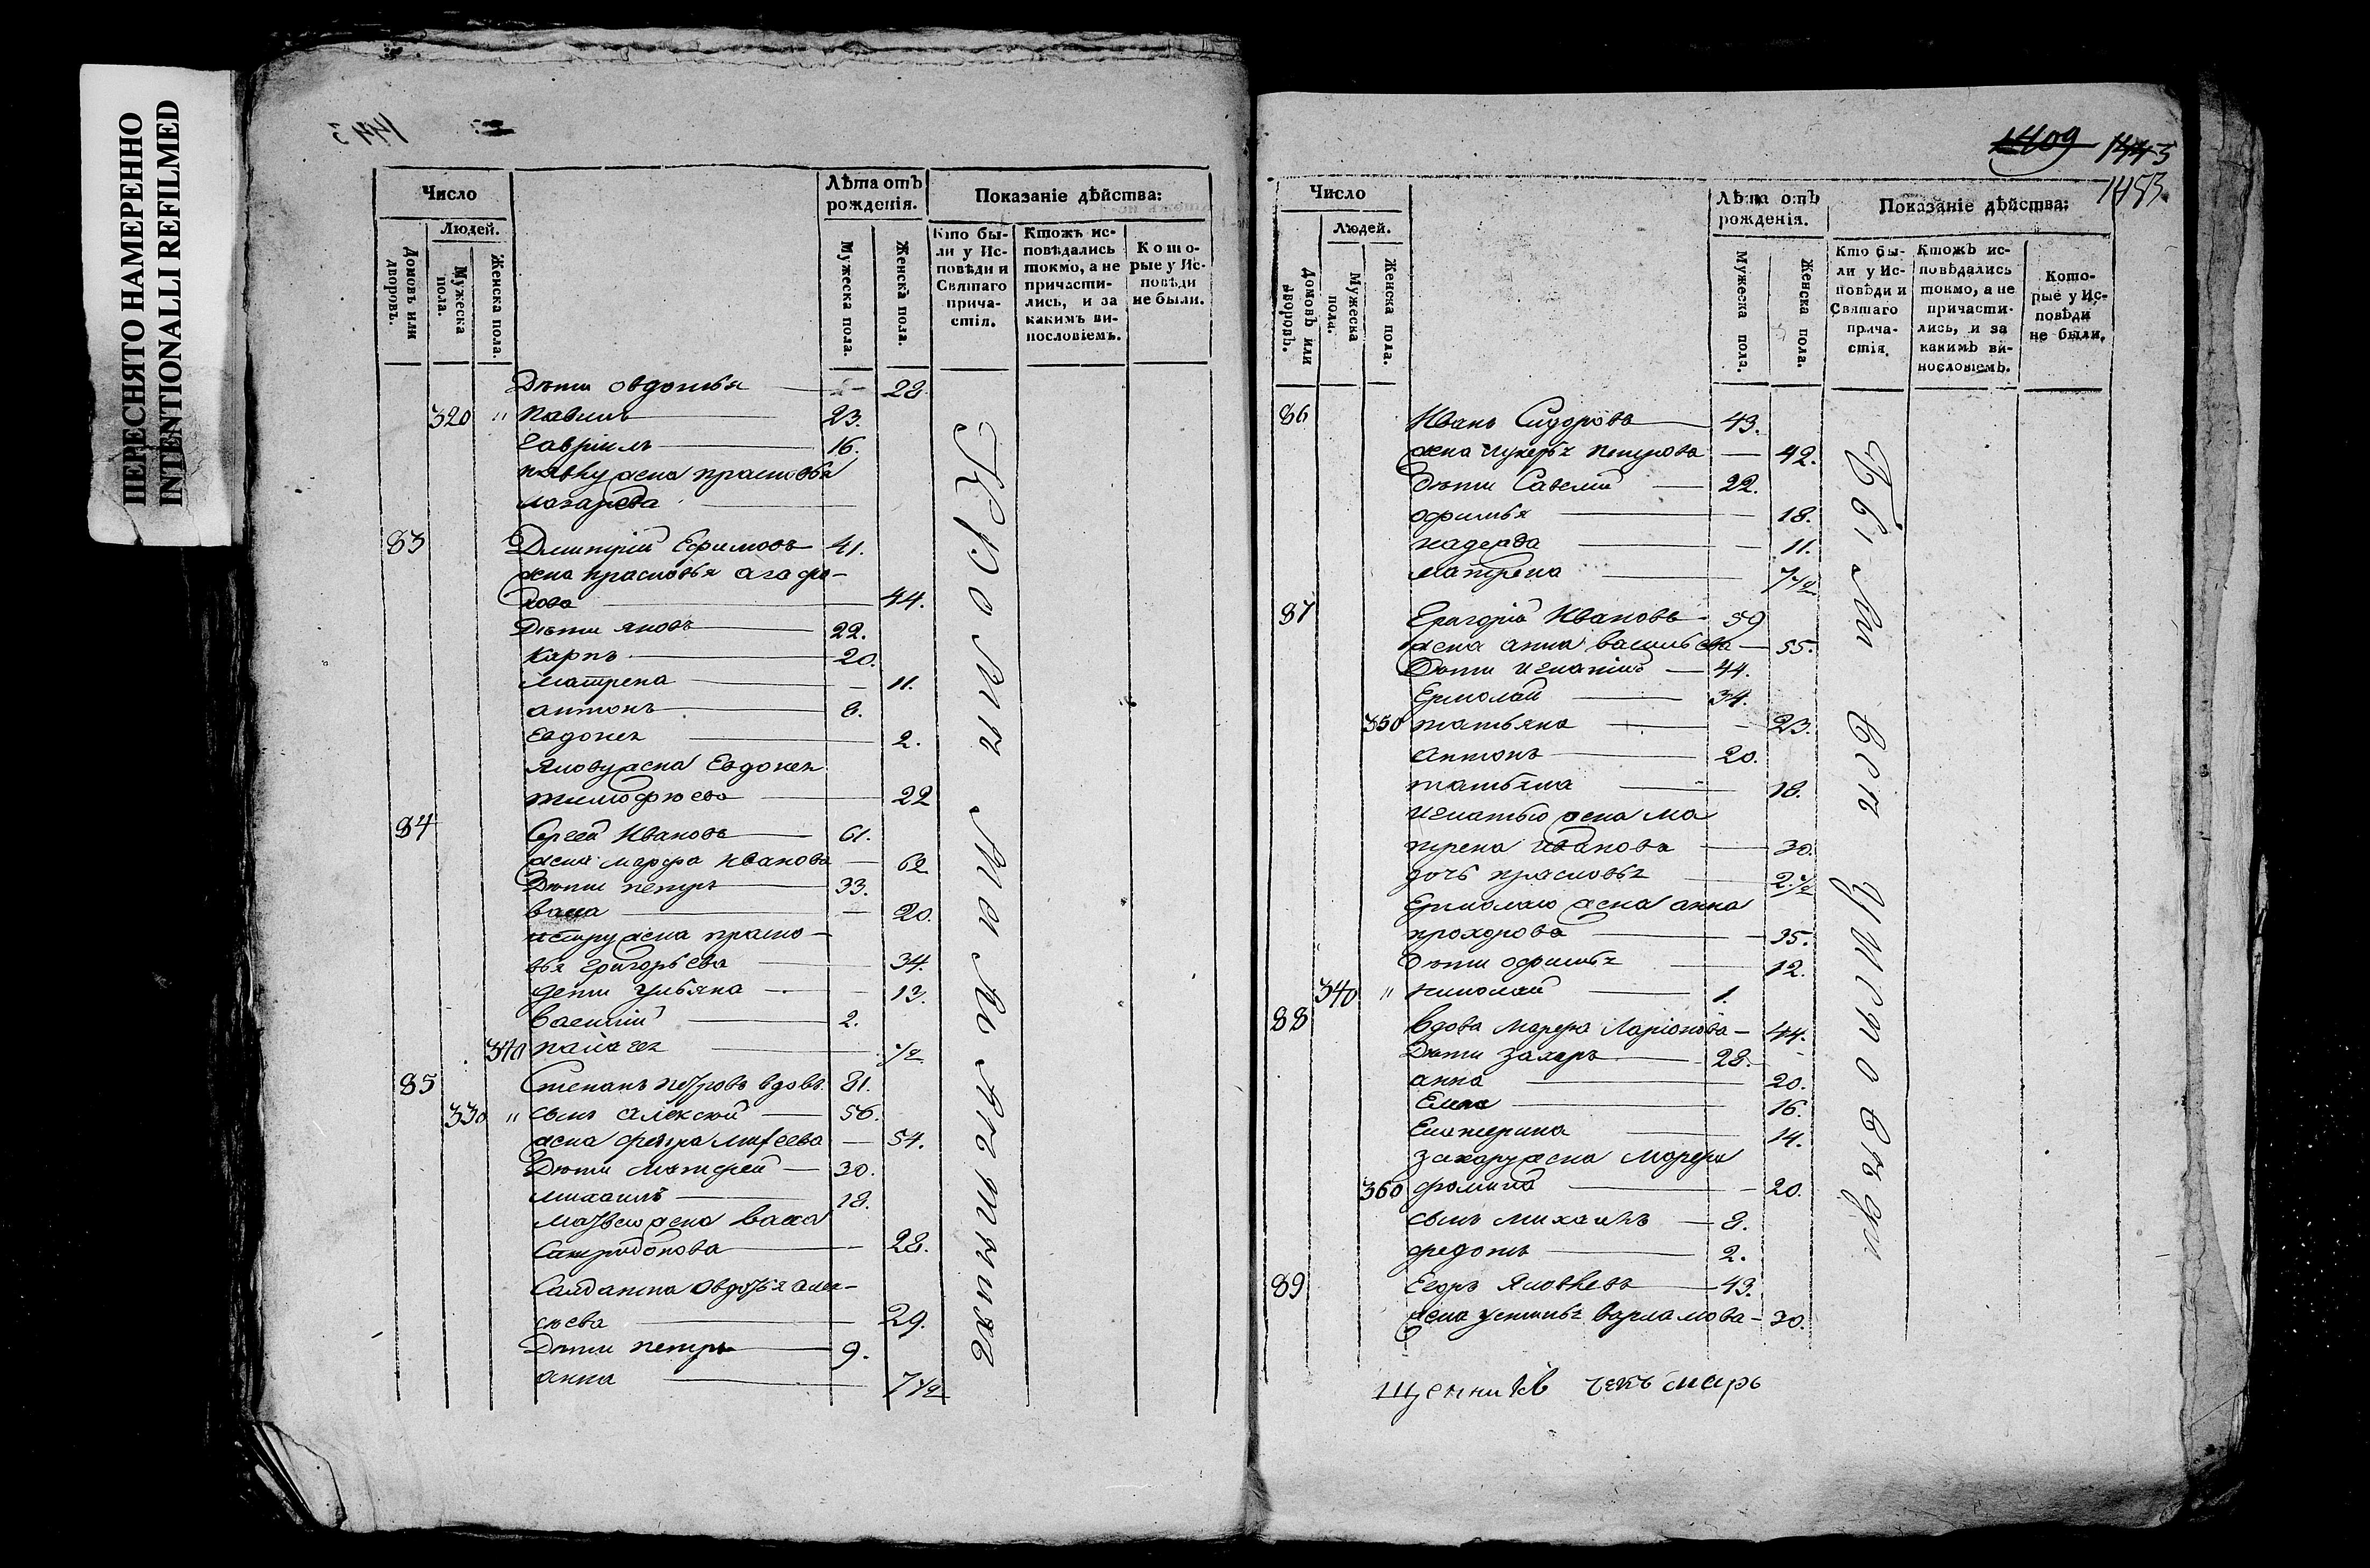 ПЕРЕСНЯТО НАМЕРЕННО
INTENTIONALLI REFILMED
1443
Число
Лѣта отъ рожденія.
Показаніе дѣйства:
Людей.
Домовъ или дворовъ.
Мужеска пола.
Женска пола.
Мужеска пола.
Женска пола.
Кто были у Исповѣди и Святаго причастія.
Ктожъ исповѣдались токмо, а не причастились, и за какимъ винословіемъ.
Которые у Исповѣди не были.
Дѣти овдотья — 28.
320 " павилъ 23.
Гавріилъ 16.
жена прасковья
лазарева
83 Дмитрій Ефимовъ 41.
жена прасковья агафо-
нова 44.
Дѣти яковъ 22.
Карпъ 20.
матрена — 11.
антонъ 8.
Евдокея 2.
Якову жена Евдокея
тимофеева 22
84 Сергей Ивановъ 61.
жена марфа иванова — 62
Дѣти петръ 33.
васса — 20.
петру жена праско-
вья григорьева 34.
дети ульяна — 13.
василій 2.
340 пелагея 1/2
85 Степанъ петровъ вдовъ 81.
330 " сынъ алексей 56.
жена — 54.
Дѣти матфей 30.
михаилъ 18.
матвею жена васса
28.
Салдатка овдотья алек-
сеева 29.
Дѣти петръ 9.
анна 7 1/2
Кромѣ малолѣтных
1409 1443
1453.
Число
Лѣта отъ рожденія.
Показаніе дѣйства:
Людей.
Домовъ или дворовъ.
Мужеска пола.
Женска пола.
Мужеска пола.
Женска пола.
Кто были у Исповѣди и Святаго причастія.
Ктожъ исповѣдались токмо, а не причастились, и за какимъ винословіемъ.
Которые у Исповѣди не были.
86 Иванъ Сидоровъ 43.
жена гликерья петрова — 42.
дѣти Савелій 22.
офимья 18.
надежда — 11.
матрена 7 1/2
87 Григорій Ивановъ 59
жена анна васильева — 55.
Дѣти игнатій 44.
Ермолай 34.
350 татьяна — 23.
антонъ 20.
татьяна 18.
игнатью жена ма
трена иванова 30.
дочь прасковья 2 1/2
Ермолаю жена анна
прохорова — 35.
дѣти офимья 12.
340 " николай 1.
88 вдова марфа Ларіонова — 44.
Дѣти захаръ 28.
анна 20.
Елена 16.
Екатерина 14.
захару жена марфа
360 фомина — 20.
сынъ михаилъ — 8.
федотъ 2.
89 Егоръ Яковлевъ 43.
жена устинья варламова — 30.
Были всѣ у исповѣди